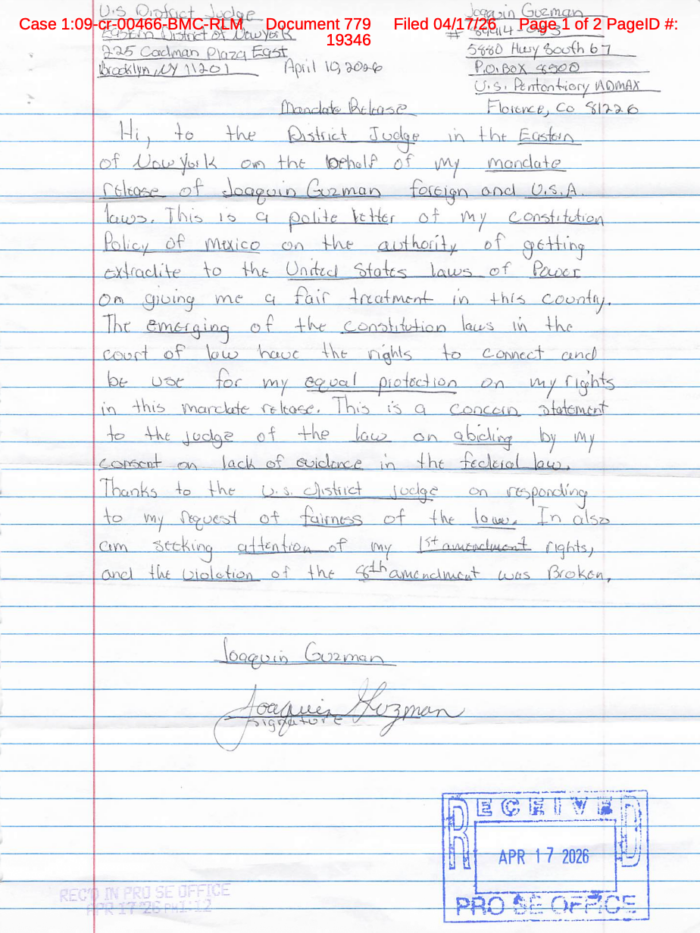 U.S District Judge
Case 1:09-cr-00466-BMC-RLM Document 779 Filed 04/17/26 Page 1 of 2 PageID #: 19346
Eastern District of New York
225 Cadman Plaza East
Brooklyn, NY 11201
April 10, 2026
Joaquin Guzman
#
5880 Hwy South 67
P.O. Box 8500
U.S. Pententiary ADMAX
Florence, Co 81226
Mandate Release
Hi, to the District Judge in the Eastern
of New York on the behalf of my mandate
release of Joaquin Guzman foreign and U.S.A.
laws. This is a polite letter of my constitution
Policy of mexico on the authority of getting
extradite to the United States laws of Power
on giving me a fair treatment in this country.
The emerging of the constitution laws in the
court of law have the rights to connect and
be use for my equal protection on my rights
in this mandate release. This is a concern statement
to the judge of the law on abiding by my
consent on lack of evidence in the federal law.
Thanks to the U.S. district judge on responding
to my request of fairness of the law. In also
am seeking attention of my 1st amendment rights,
and the violation of the 8th amendment was Broken.
Joaquin Guzman
Joaquin Guzman
Signature
RECEIVED
APR 17 2026
PRO SE OFFICE
REC'D IN PRO SE OFFICE
APR 17 '26